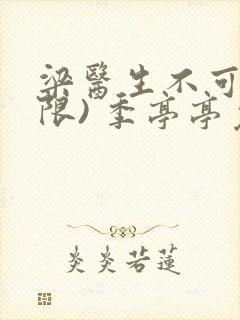 梁醫生不可
限) 季亭亭
炎炎若蓮